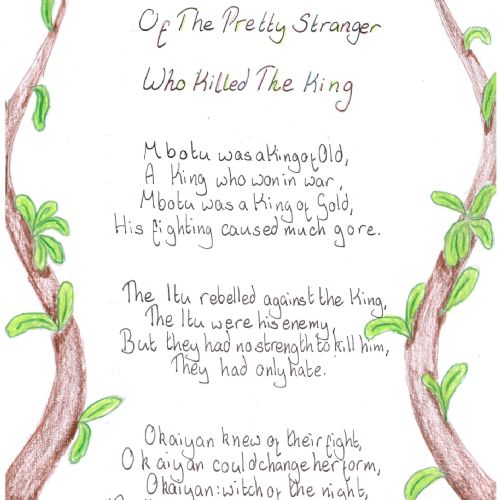 Of The Pretty Stranger
Who Killed The King
Mbotu was a King of Old,
A King who won in war,
Mbotu was a King of Gold,
His fighting caused much gore.
The Itu rebelled against the King,
The Itu were his enemy,
But they had no strength to kill him,
They had only hate.
Okaiyan knew of their fight,
Okaiyan could change her form,
Okaiyan: witch of the night,